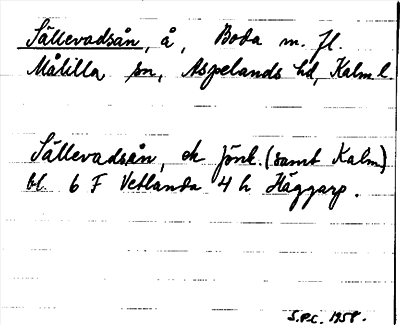 Sällevadsån, å, Boda m. fl.
Målilla sn, Aspelands hd, Kalm l.
Sällevadsån, ek Jönk. (samt Kalm)
bl. 6 F Vetlanda 4 h Häggarp.
S.P.C. 1958.